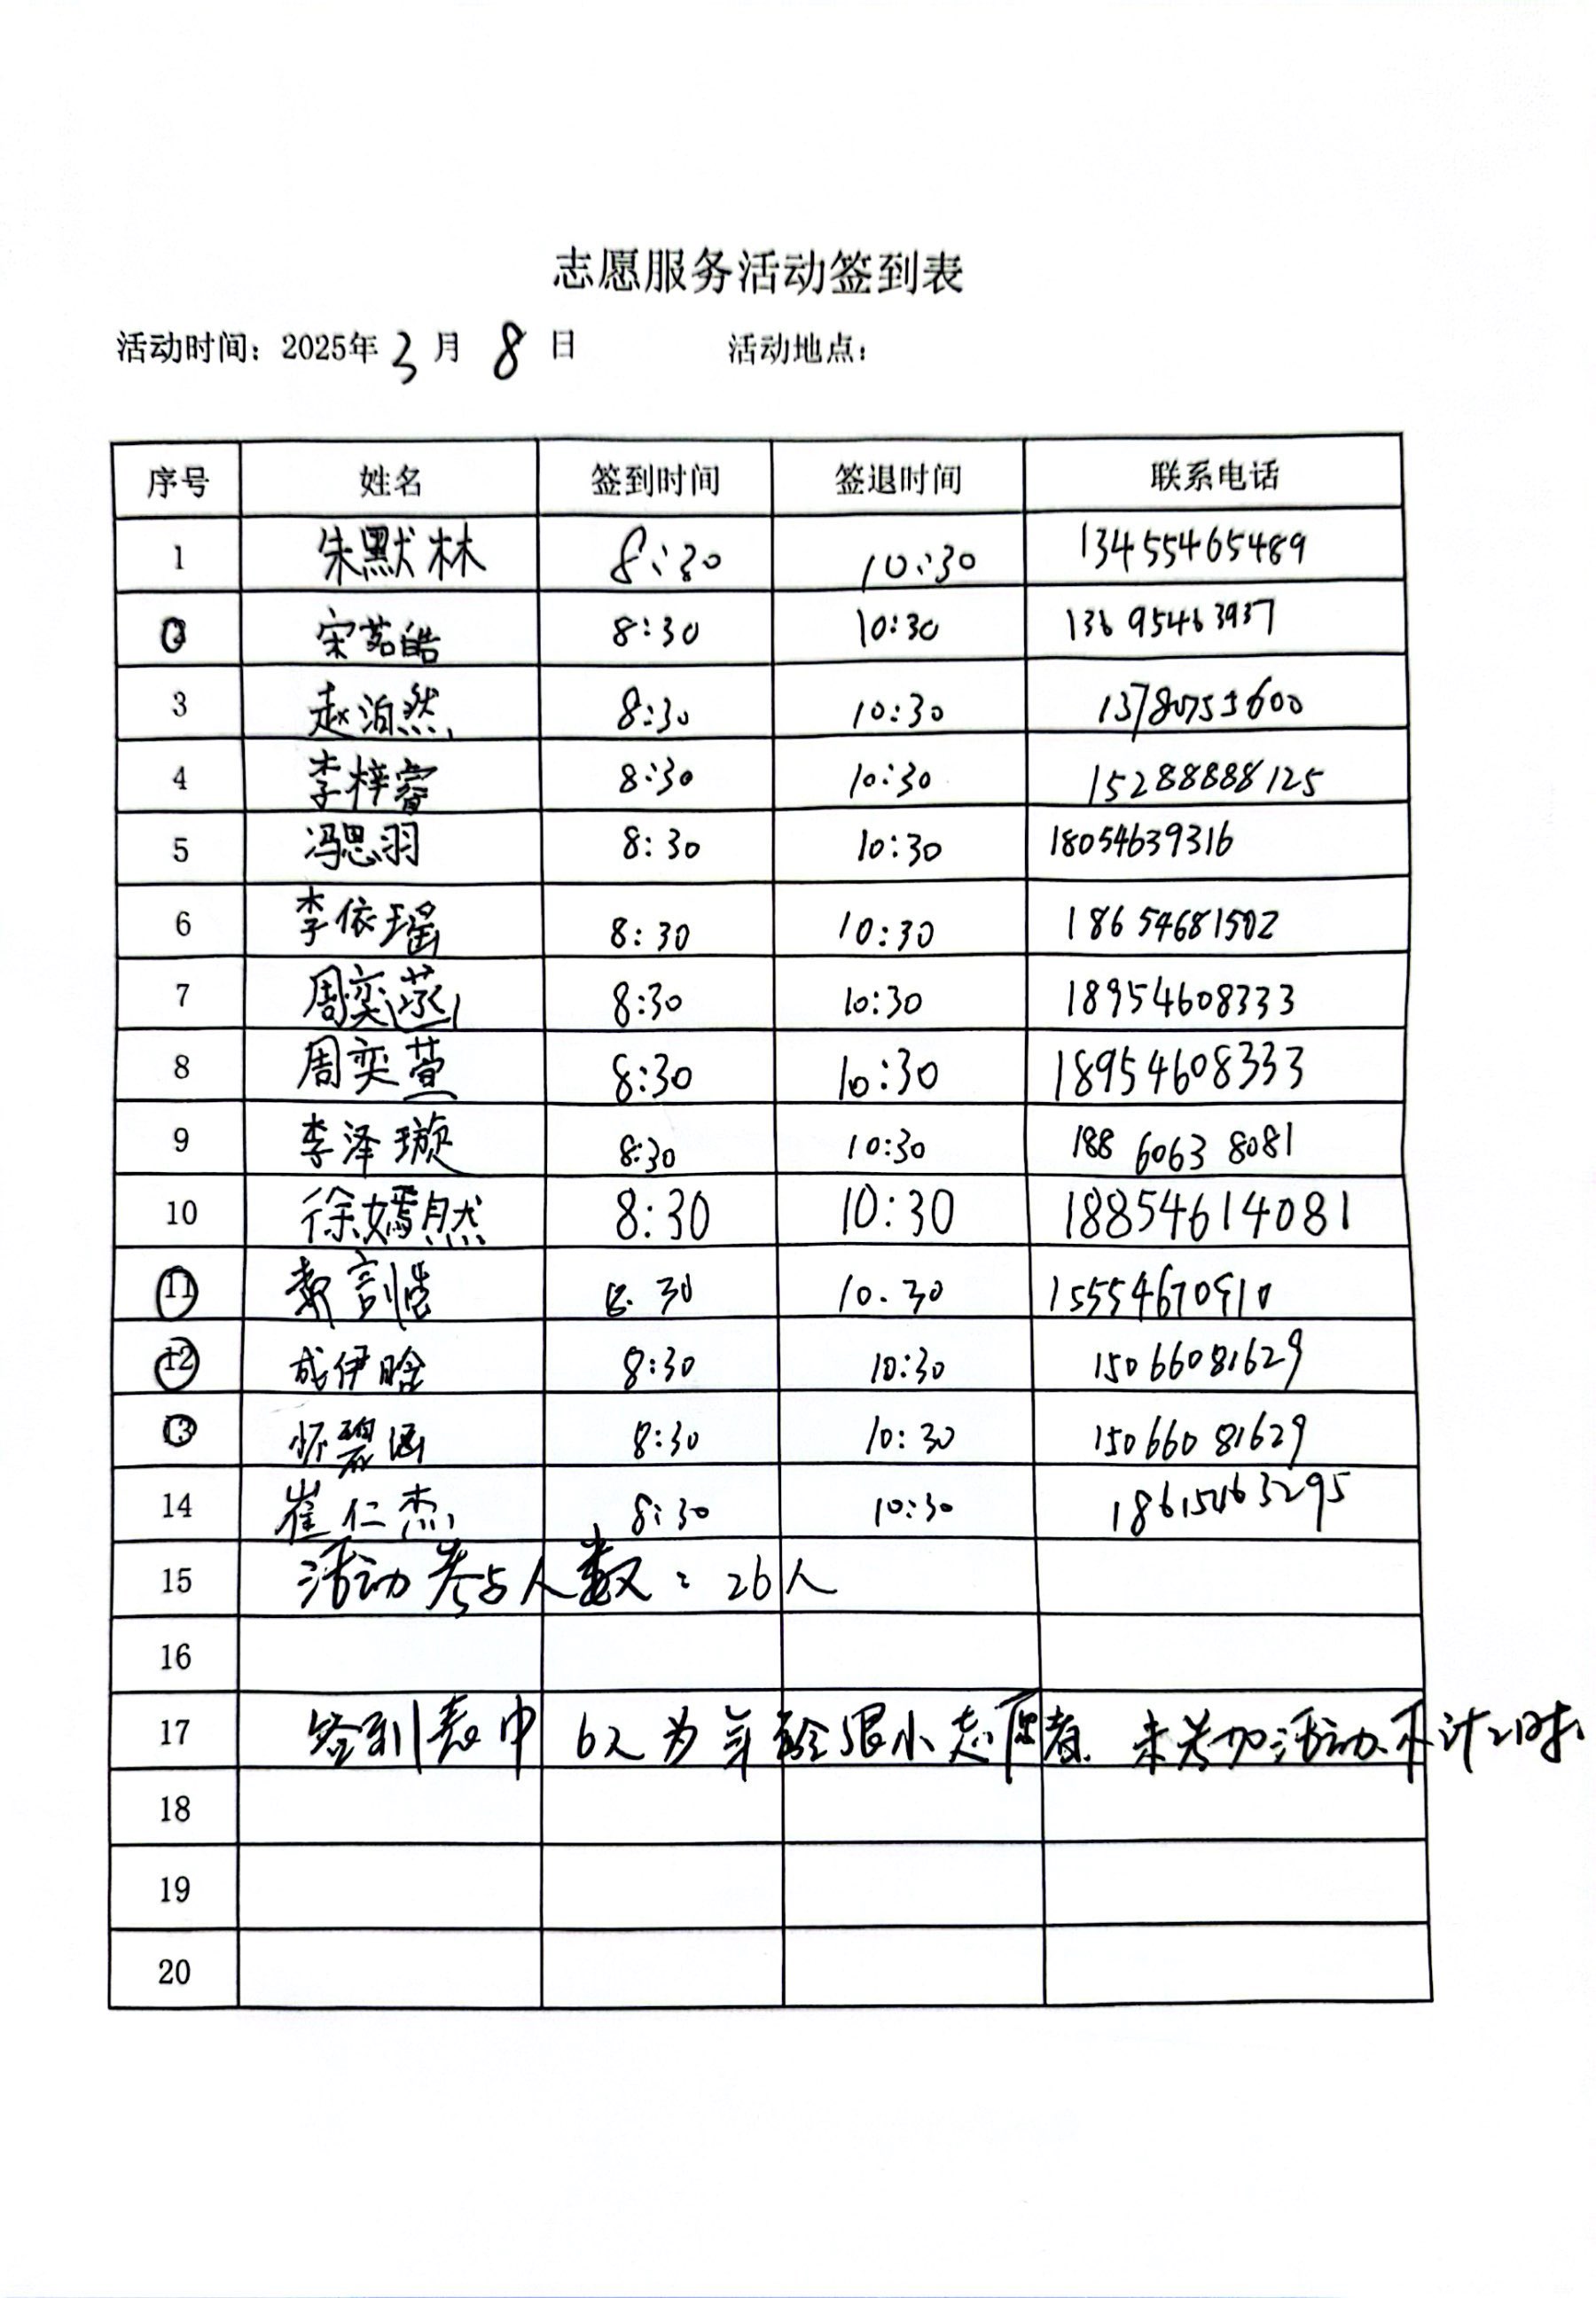 志愿服务活动签到表
活动时间：2025年 3 月 8 日 活动地点：
序号 姓名 签到时间 签退时间 联系电话
1 朱默林 8:30 10:30 13455465489
宋茹皓 8:30 10:30 13695463937
3 赵泊然 8:30 10:30
4 李梓睿 8:30 10:30 15288888125
5 冯思羽 8:30 10:30 18054639316
6 李依瑶 8:30 10:30 18654681502
7 周奕 8:30 10:30 18954608333
8 周奕萱 8:30 10:30 18954608333
9 李泽璇 8:30 10:30 188 6063 8081
10 徐嫣然 8:30 10:30 18854614081
11 8:30 10.30 15554670910
12 成伊晗 8:30 10:30 15066081629
13 怀碧涵 8:30 10:30 15066081629
14 崔仁杰 8:30 10:30 18615463295
15 活动参与人数：26人
16
17 签到表中 6人为年龄很小志愿者 未参加活动不计工时
18
19
20